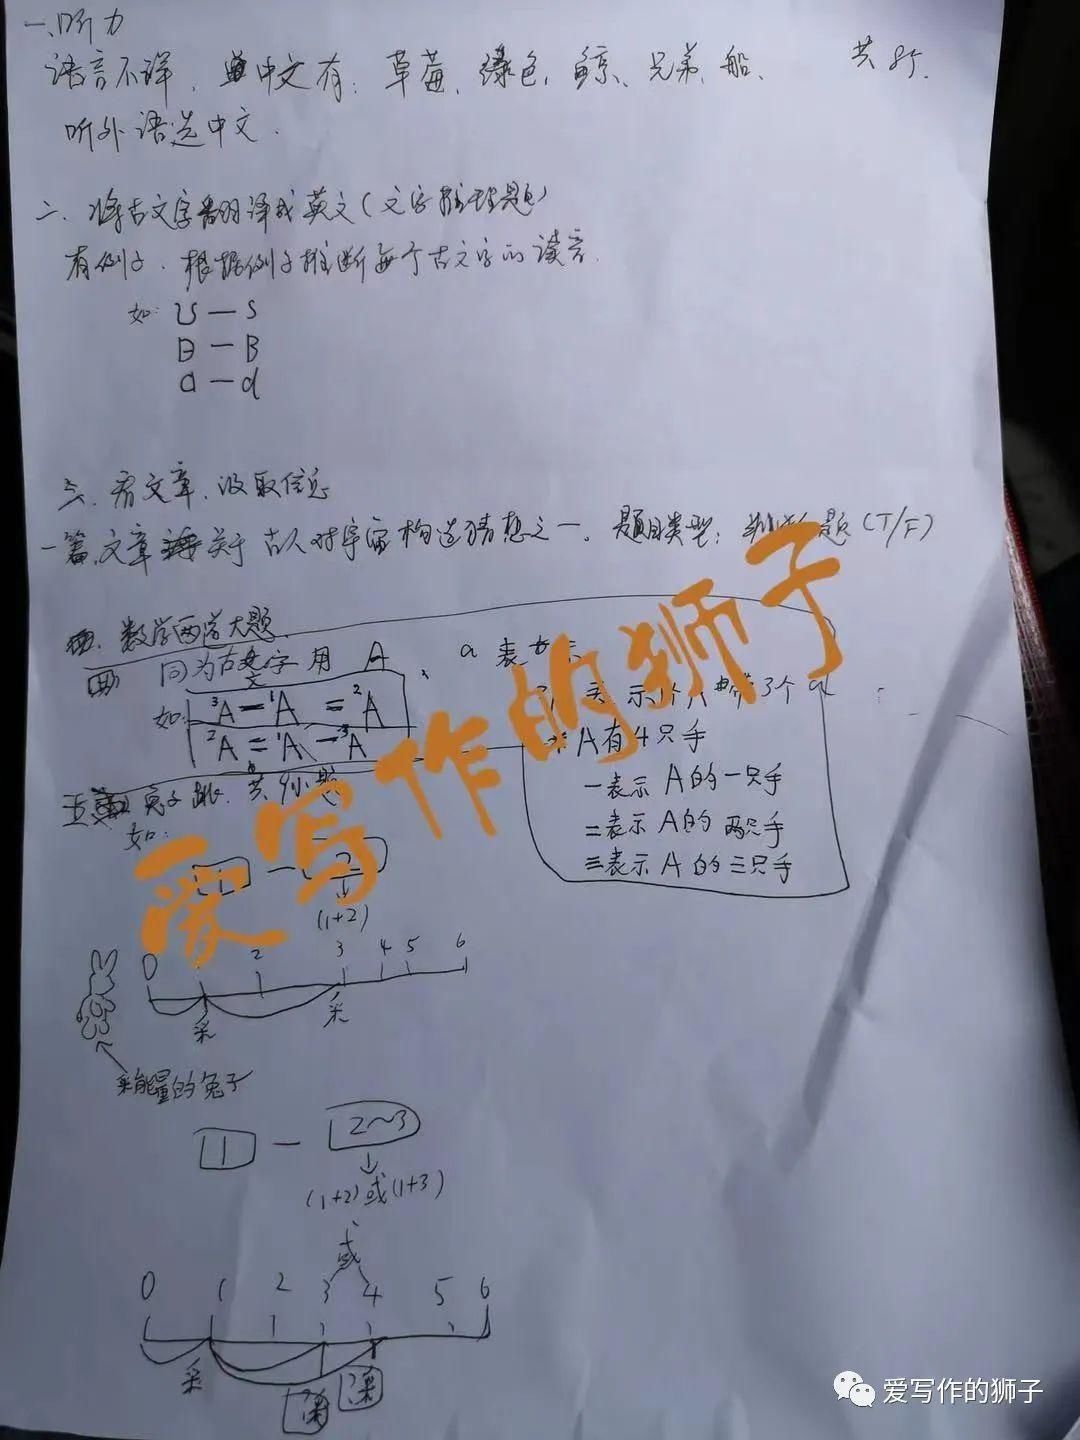 一、听力
语言不详，中文有：草莓、绿色、鲸、兄弟、船、 共8斤.
听外语选中文.
二、将古文字翻译成英文(文字推理题)
有例子.根据例子推断每个古文字的读音.
如: 
— S
— B
— d
三、看文章、汲取信息
一篇文章 关于古人对宇宙构造猜想之一。题目类型: 题(T/F)
数学两道大题.
四 同为古文字用 A 、a 表
如: ³A=¹A =²A
²A=¹A-³A
示1个A 带3个a
A有4只手
一表示A的一只手
二表示A的两只手
三表示A的三只手
五 兔子跳.共9小题
如:
1 — 2
(1+2)
0 2 3 4 5 6
采 采
采能量的兔子
1 — 2~3
(1+2)或(1+3)
或
0 1 2 3 4 5 6
采 ?采 ?采
爱写作的狮子
爱写作的狮子